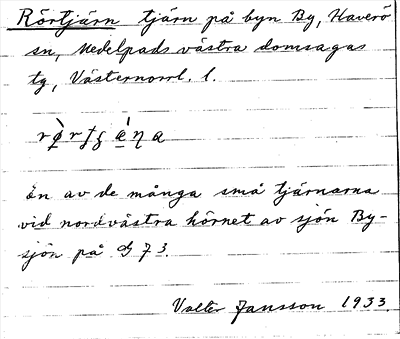 Rörtjärn tjärn på byn By, Haverö
sn, Medelpads västra domsagas
tg, Västernorrl. l.
en av de många små tjärnarna
vid nordvästra hörnet av sjön By-
sjön på G 73.
Valter Jansson 1933.